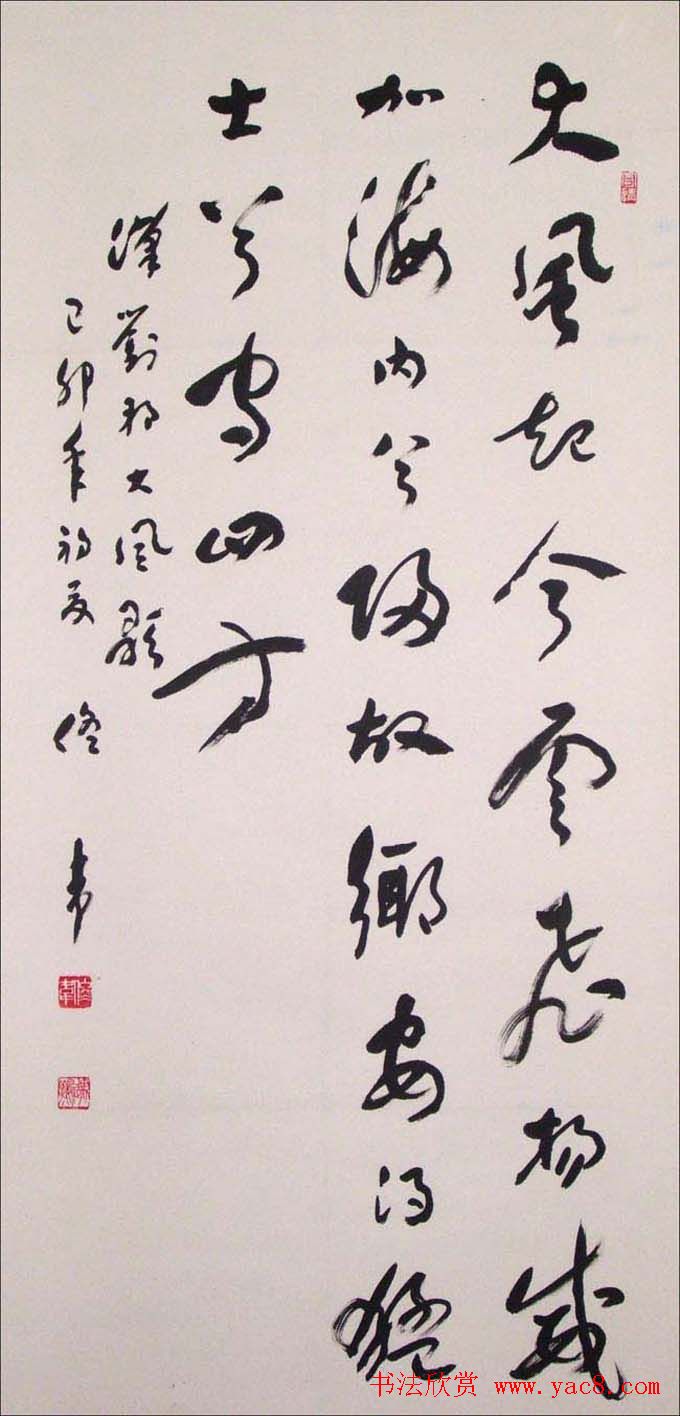 大風起兮雲飛揚威
加海内兮歸故鄉安得猛
士兮守四方
漢劉邦大風歌
己卯年初夏 佟韋
书法欣赏 www.yac8.com